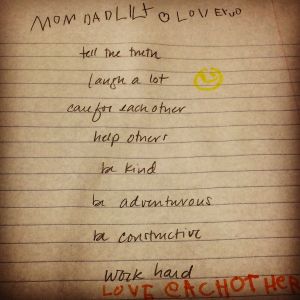 MOM DAD LILY LOVE
tell the truth
laugh a lot
care for each other
help others
be kind
be adventurous
be constructive
work hard
LOVE EACHOTHER